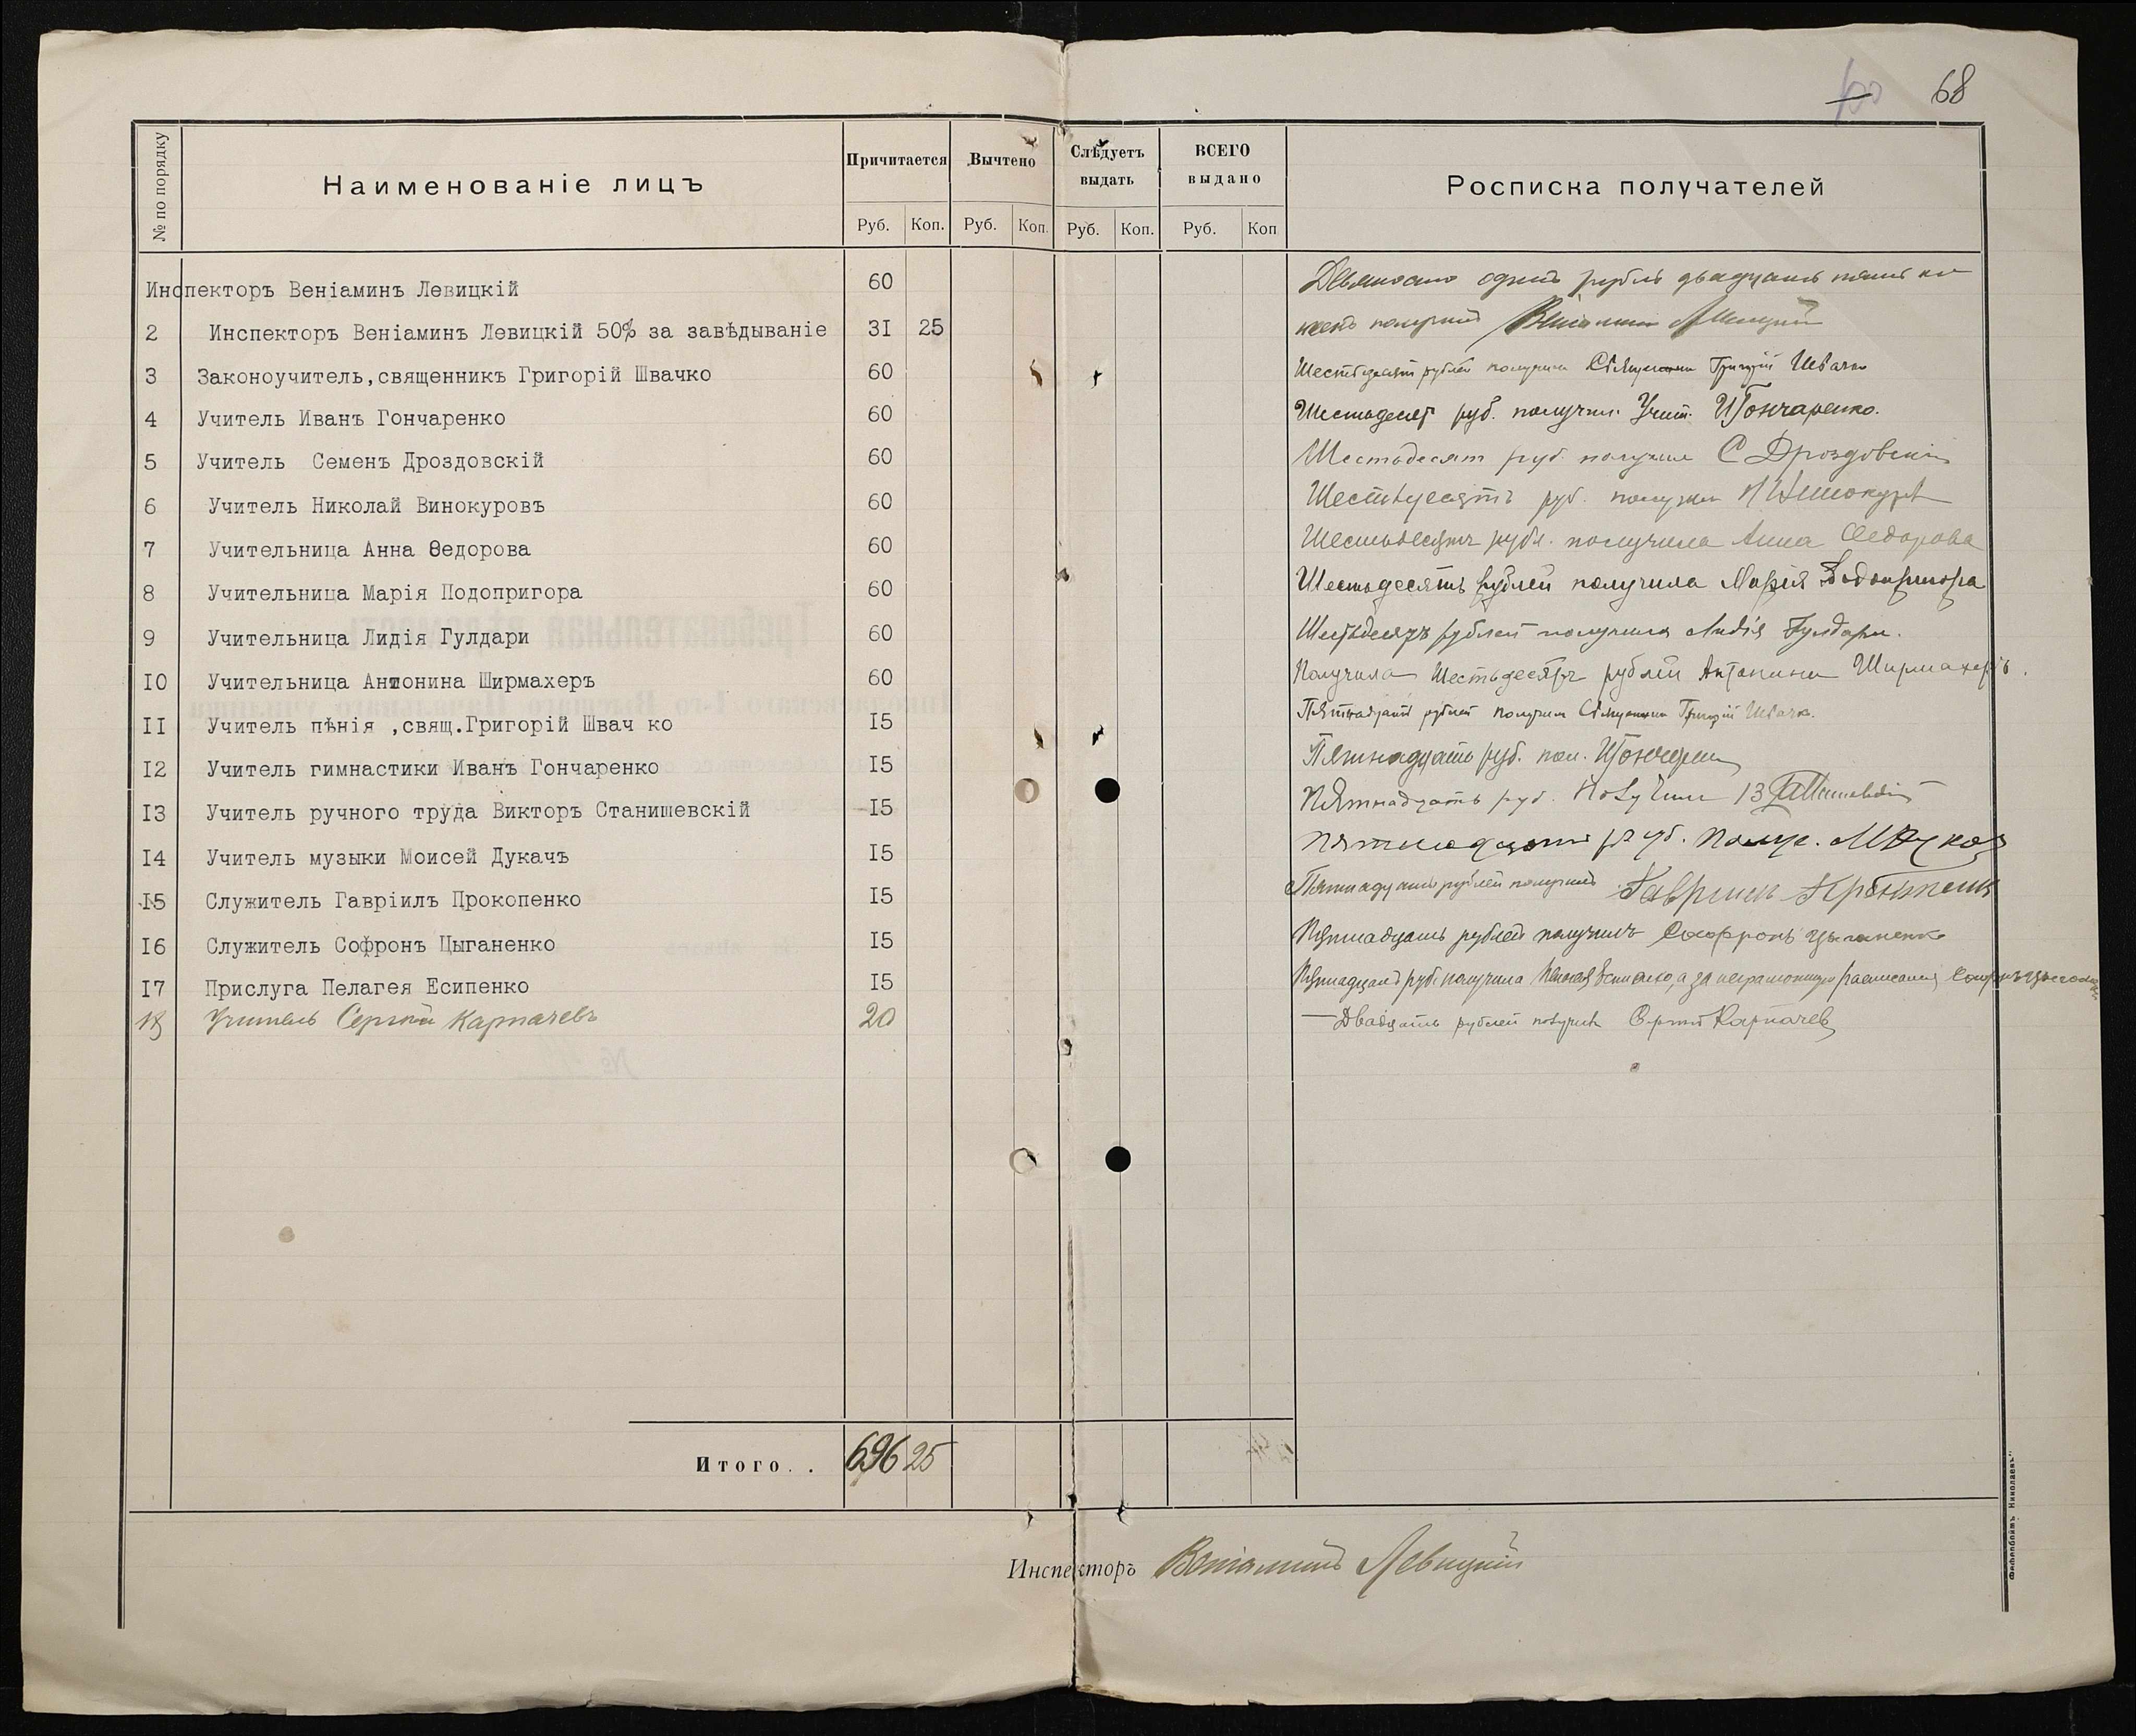 68
№ по порядку
Наименованіе лицъ
Причитается
Вычтено
Слѣдуетъ выдать
ВСЕГО выдано
Росписка получателей
Руб. Коп. Руб. Коп. Руб. Коп. Руб. Коп
Инспекторъ Веніаминъ Левицкій 60 Девяносто одинъ рубль двадцать пять ко
2 Инспекторъ Веніаминъ Левицкій 50% за завѣдываніе 31 25 пеекъ получилъ Веніаминъ Левицкій
3 Законоучитель,священникъ Григорій Швачко 60 Шестьдесят рублей получилъ Священникъ Григорій Швачко
4 Учитель Иванъ Гончаренко 60 Шестьдесят руб. получил. Учит. И Гончаренко.
5 Учитель Семенъ Дроздовскій 60 Шестьдесят руб. получил С Дроздовскій
6 Учитель Николай Винокуровъ 60 Шестьдесятъ руб. получил Н Винокуров
7 Учительница Анна Ѳедорова 60 Шестьдесятъ рубл. получила Анна Ѳедорова
8 Учительница Марія Подопригора 60 Шестьдесятъ рублей получила Марія Подопригора
9 Учительница Лидія Гулдари 60 Шестьдесятъ рублей получила Лидія Гулдари.
10 Учительница Антонина Ширмахеръ 60 Получила Шестьдесятъ рублей Антонина Ширмахеръ.
11 Учитель пѣнія ,свящ.Григорій Швач ко 15 Пятнадцать рублей получилъ Священникъ Григорій Швачко.
12 Учитель гимнастики Иванъ Гончаренко 15 Пятнадцать руб. пол. И Гончарен
13 Учитель ручного труда Викторъ Станишевскій 15 Пятнадцать руб. Получил В Станишевскій
14 Учитель музыки Моисей Дукачъ 15 Пятнадцать руб. Получ. М Дукач
15 Служитель Гавріилъ Прокопенко 15 Пятнадцать рублей получилъ Гавриил
16 Служитель Софронъ Цыганенко 15 Пятнадцать рублей получилъ Софронъ Цыганенко
17 Прислуга Пелагея Есипенко 15 Пятнадцать руб. получила Пелагея Есипенко, а за неграмотную расписался Софронъ Цыганенко
18 Учитель Сергѣй Карпачевъ 20 Двадцать рублей получилъ Сергѣй Карпачев
Итого. . 696 25
Инспекторъ Веніаминъ Левицкій